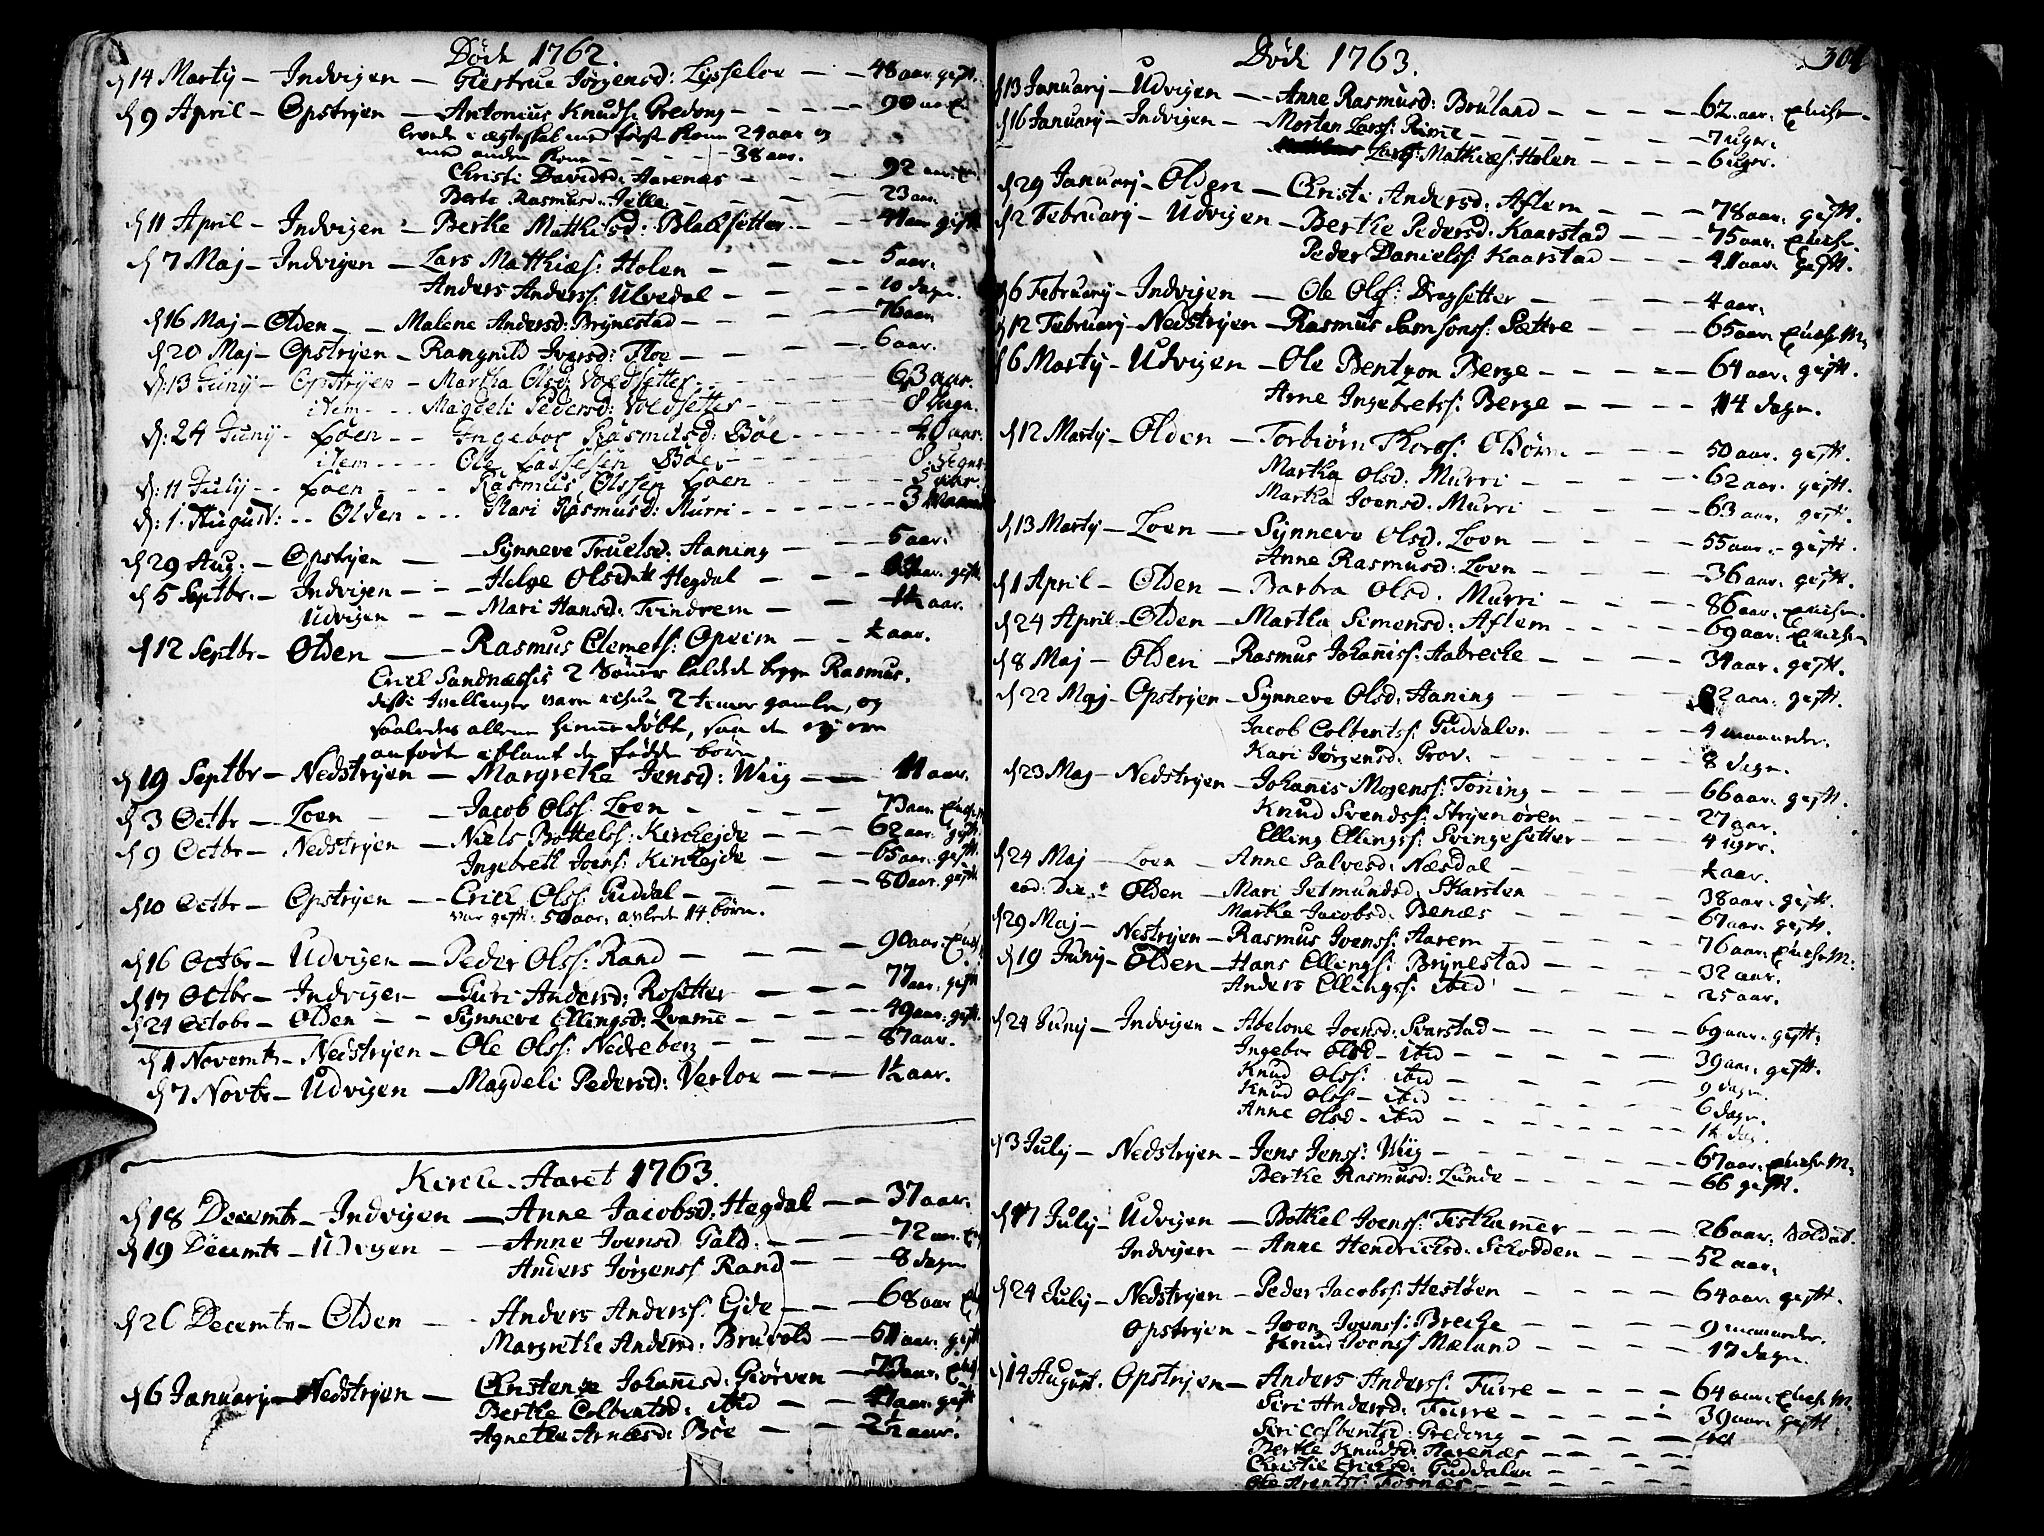 Døde 1762.
14 Martÿ – Indvigen – Giertrue Jørgensd: Lisseloe – – 48 aar. gift.
9 April – Opstrÿen – Antonius Knuds: Gredung – – 90 aar
levede i ægteskab med første Kone 24 aar og
med anden Kone – – – 38 aar.
Christi Davidsd: Aarenæs – – 92 aar.
Berte Rasmusd: – – 23 aar.
11 April – Indvigen – Berthe Mathisd: Blaksetter – – 41 aar gift
7 Maj – Indvigen – Lars Matthiæs: Holen – – 5 aar.
Anders Anders: Ulvedal – – 10 dage.
16 Maj – Olden – – Malene Andersd: Brÿnestad – – 76 aar
20 Maj – Opstrÿen – Rangnild Iversd: Floe – – 6 aar.
13 Junÿ – Opstrÿen – Martha Olsd: Voldsetter – – 63 aar.
item – – Magdeli Pedersd: Voldsetter – – 8 dage.
24 Junÿ – Loen – – Ingebor Rasmusd: Böe – – 40 aar.
item – – Ole Lassesen Böe – – 8
11 Julÿ – – Loen – – Rasmus Olssen Loen – – 3 aar.
1 August: – – Olden – – Mari Rasmusd: Murri – – 3 Maaned
29 Aug: – Opstrÿen – Sÿnneve Truelsd: Aaning – – 5 aar.
5 Septbr: – Indvigen – – Helge Olsd: Hegdal – – aar. gift
Udvigen – – Mari Hansd: Tvindrem – – 1½ aar.
12 Septbr – Olden – Rasmus Clemets: Opheim – – ½ aar.
Erick Sandnæssis 2 Sönner kaldede begge Rasmus.
disse Tvillinger vare ickun 2 timer gamle, og
saaledes allene hiemmedöbt, saa de eÿ ere
anförte iblant de födde börn
19 Septbr – Nedstrÿen – Margrethe Jensd: Wiig – – 11 aar.
3 Octbr – Loen – Jacob Ols: Loen – – 73 aar.
9 Octbr – Nedstrÿen – Niels Bottels: Kirkeide – – 62 aar gift
Ingebrett Joens: Kirkeide – – 65 aar. gift
10 Octbr – Opstrÿen – Erick Ols: Guddal – – 80 aar. gift
var gift: 50 aar, avlede 14 börn.
16 Octbr – Udvigen – Peder Ols: Rand – – 90 aar.
17 Octbr – Indvigen – Guri Andersd: Rosetter – – 77 aar: gift
24 Octobr – Olden – – Sÿnneve Ellingsd: Qvame – – 49 aar: gift.
1 Novembr – Nedstrÿen – Ole Ols: Nedreberg – – 87 aar.
7 Novbr – Udvigen – Magdeli Pedersd: Verloe – – 1½ aar.
Kircke-Aaret 1763.
18 Decembr – Indvigen – Anne Jacobsd: Hegdal – – 37 aar.
19 Decembr – Udvigen – – Anne Joensd Gald: – – 72 aar.
Anders Jørgens: Rand – – 8 dage
26 Decembr – Olden – – Anders Anders: Eide – – 68 aar
Margrethe Andersd: Bruvold – – 51 aar. gift
6 Januarÿ – Nedstrÿen – Christense Johannisd: Giörven – 73 aar.
Berthe Colbentsd: ibid – – 47 aar. gift
Agnethe Arnesd: Böe – – 2½ aar.
Døde 1763.
304
13 Januarÿ – Udvigen – Anne Rasmusd: Bruland – – 62 aar. Encke
16 Januarÿ – Indvigen – Morten Lars: Rime – – 7 uger.
Lars: Mathiæs: Holen – – 6 uger.
29 Januarÿ – Olden – Christi Andersd: Aflem – – 78 aar. gift.
2 Februarÿ – Udvigen – Berthe Pedersd: Kaarstad – – 75 aar. Encke
Peder Daniels: Kaarstad – – 41 aar. gift.
6 Februarÿ – Indvigen – Ole Ols: Dragsetter – – 4 aar.
12 Februarÿ – Nedstrÿen – Rasmus Samsons: Sættre – – 65 aar. Encke M.
6 Martÿ – Udvigen – Ole Bentzon Berge – – 64 aar. gift.
Arne Ingebrets: Berge – – 14 dage.
12 Martÿ – Olden – Torbiørn Thors: Oldören – – 50 aar. gift.
Martha Olsd: Murri – – 62 aar. gift.
Martha Joensd: Murri – – 63 aar. gift.
13 Martÿ – Loen – Sÿnneve Olsd: Loen – – 55 aar. gift.
Anne Rasmusd: Loen – – 36 aar. gift.
1 April – Olden – Barbra Olsd: Murri – – 86 aar. Encke
24 April – Olden – Martha Simensd: Aflem – – 69 aar. Encke
8 Maj – Olden – Rasmus Johannis: Aabrecke – – 34 aar. gift.
22 Maj – Opstrÿen – Sÿnneve Olsd: Aaning – – 2 aar. gift.
Jacob Colbents: Guddalen – – 4 maaneder.
Kari Jørgensd: Grov. – – 8 dage.
23 Maj – Nedstrÿen – Johannis Mogens: Töning – – 66 aar. gift.
Knud Svends: Strÿenören – – 27 aar.
Elling Ellings: Svingesetter – – 4 uger.
24 Maj – Loen – Anne Salvesd: Næsdal – – ½ aar.
eod: Die: Olden – Mari Jetmundsd: Skarsten – – 38 aar. gift.
Marthe Jacobsd: Benæs – – 67 aar. gift.
29 Maj – Nestrÿen – Rasmus Joens: Aarem – – 76 aar. Encke M.
19 Junÿ – Olden – Hans Ellings: Brÿnestad – – 32 aar.
Anders Ellings: ibid – – 25 aar.
24 Junÿ – Indvigen – Abelone Joensd: Svarstad – – 69 aar. gift.
Ingebor Olsd – ibid – – 39 aar. gift.
Knud Ols: ibid – – 9 dage.
Knud Ols – ibid – – 6 dage.
Anne Olsd – ibid – –
3 Julÿ – Nedstrÿen – Jens Jens: Wiig – – 67 aar. Encke M.
Berthe Rasmusd: Lunde – – 66 gift.
17 Julÿ – Udvigen – Bothel Joens: Fiskhammer – – 26 aar. Soldat.
Indvigen – Anne Hendricksd: Schodden – – 52 aar.
24 Julÿ – Nedstrÿen – Peder Jacobs: Hestöen – – 64 aar. gift.
Opstrÿen – Joen Joens: Brecke – – 9 maaneder.
Knud Joens: Mæland – – 17 dage.
14 August. Opstrÿen – Anders Anders: Furre – – 64 aar. Encke M.
Siri Andersd: Furre – – 39 aar. gift.
Siri Colbentsd: Gredung – –
Berthe Knudsd: Aarenæs – –
Christie Ericksd: Guddalen – –
Ole Arents: Fosnæs – –